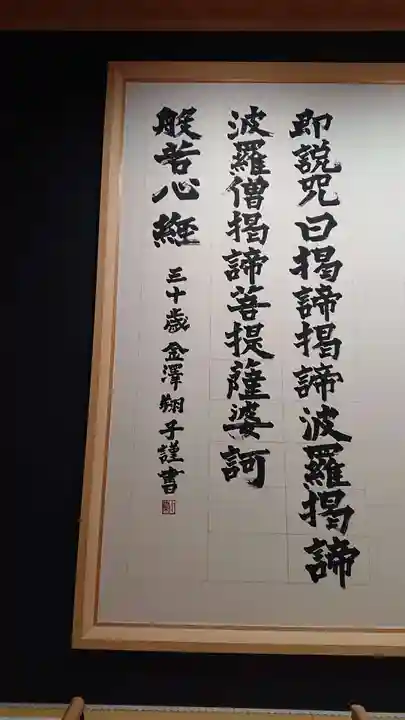 即説咒曰掲諦掲諦波羅掲諦
波羅僧掲諦菩提薩婆訶
般若心経
三十歳 金澤翔子謹書